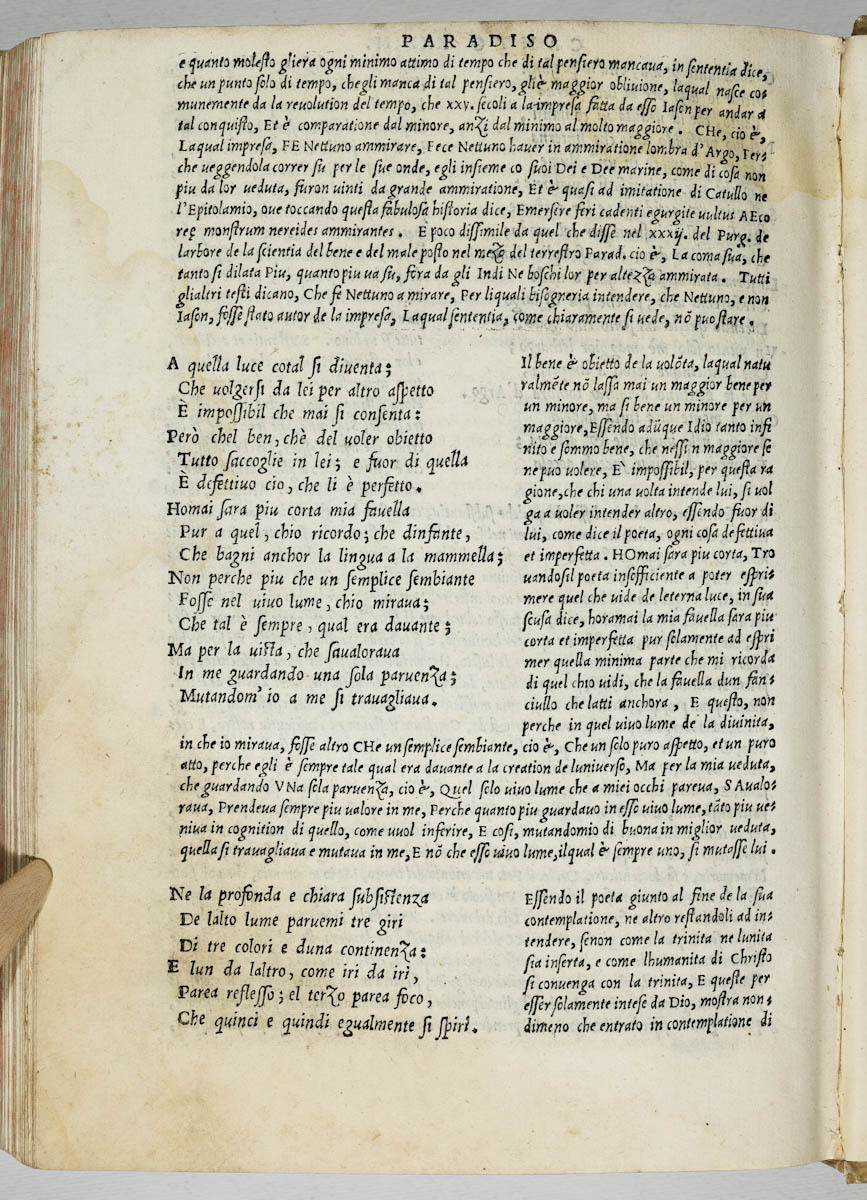 PARADISO
e quanto molesto gliera ogni minimo attimo di tempo che di tal pensiero mancaua, in sententia dice,
che un punto solo di tempo, chegli manca di tal pensiero, gliè maggior obliuione, laqual nasce co-
munemente da la reuolution del tempo, che xxv. secoli a la impresa fatta da esso Iason per andar a
tal conquisto, Et è comparatione dal minore, anzi dal minimo al molto maggiore. CHe, cio è,
Laqual impresa, FE Nettuno ammirare, Fece Nettuno hauer in ammiratione lombra d'Argo, Per-
che ueggendola correr su per le sue onde, egli insieme co suoi Dei e Dee marine, come di cosa non
piu da lor ueduta, furon uinti da grande ammiratione, Et è quasi ad imitatione di Catullo ne
l'Epitolamio, oue toccando questa fabulosa historia dice, Emersere feri cadenti egurgite uultus AEco
reę monstrum nereides ammirantes. E poco dissimile da quel che disse nel xxxij. del Purg. de
larbore de la scientia del bene e del male posto nel mezo del terrestro Parad. cio è, La coma sua, che
tanto si dilata Piu, quanto piu ua su, fora da gli Indi Ne boschi lor per altezza ammirata. Tutti
glialtri testi dicano, Che fe Nettuno a mirare, Per liquali bisogneria intendere, che Nettuno, e non
Iason, fosse stato autor de la impresa, Laqual sententia, come chiaramente si uede, nõ puo stare.
A quella luce cotal si diuenta;
Che uolgersi da lei per altro aspetto
È impossibil che mai si consenta:
Però chel ben, chè del uoler obietto
Tutto saccoglie in lei; e fuor di quella
È defettiuo cio, che lì è perfetto.
Homai sara piu corta mia fauella
Pur a quel, chio ricordo; che dinfante,
Che bagni anchor la lingua a la mammella;
Non perche piu che un semplice sembiante
Fosse nel uiuo lume, chio miraua;
Che tal è sempre, qual era dauante;
Ma per la uista, che saualoraua
In me guardando una sola paruenza;
Mutandom' io a me si trauagliaua.
Il bene è obietto de la uolõta, laqual natu
ralmẽte nõ lassa mai un maggior bene per
un minore, ma si bene un minore per un
maggiore, Essendo adũque Idio tanto infi
nito e sommo bene, che nessun maggiore se
ne può uolere, E' impossibil, per questa ra
gione, che chi una uolta intende lui, si uol
ga a uoler intender altro, essendo fuor di
lui, come dice il poeta, ogni cosa defettiua
et imperfetta. HOmai sara piu corta, Tro
uandosi l poeta insofficiente a poter espri-
mere quel che uide de leterna luce, in sua
scusa dice, horamai la mia fauella sara piu
corta et imperfetta pur solamente ad espri
mer quella minima parte che mi ricorda
di quel chio uidi, che la fauella dun fan-
ciullo che latti anchora, E questo, non
perche in quel uiuo lume de la diuinita,
in che io miraua, fosse altro CHe un semplice sembiante, cio è, Che un solo puro aspetto, et un puro
atto, perche egli è sempre tale qual era dauante a la creation de luniuerso, Ma per la mia ueduta,
che guardando VNa sola paruenza, cio è, Quel solo uiuo lume che a miei occhi pareua, SAualo-
raua, Prendeua sempre piu ualore in me, Perche quanto piu guardauo in esso uiuo lume, tãto piu ue-
niua in cognition di quello, come uuol inferire, E cosi, mutandomio di buona in miglior ueduta,
quella si trauagliaua e mutaua in me, E nõ che esso uiuo lume, ilqual è sempre uno, si mutasse lui.
Ne la profonda e chiara subsistenza
De lalto lume paruemi tre giri
Di tre colori e duna continenza:
E lun da laltro, come iri da iri,
Parea reflesso; el terzo parea foco,
Che quinci e quindi egualmente si spiri.
Essendo il poeta giunto al fine de la sua
contemplatione, ne altro restandoli ad in-
tendere, senon come la trinita ne lunita
sia inserta, e come lhumanita di Christo
si conuenga con la trinita, E queste per
esser solamente intese da Dio, mostra non-
dimeno che entrato in contemplatione di